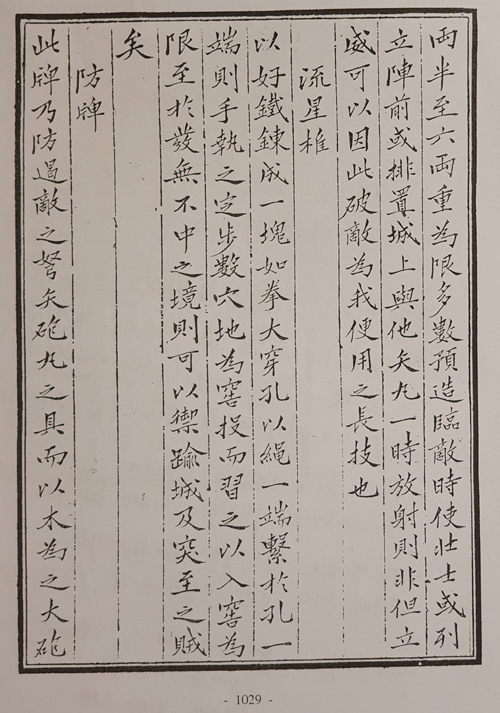 両半至六両重為限多數預造臨敵時使壯士或列
立陣前或排置城上與他矢丸一時放射則非但立
威可以因此破敵為我便用之長技也
流星椎
以好鐵鍊成一塊如拳大穿孔以繩一端繫於孔一
端則手執之定步數穴地為窖投而習之以入窖為
限至於發無不中之境則可以禦踰城及突至之賊
矣
防牌
此牌乃防遏敵之弩矢砲丸之具而以木為之大砲
- 1029 -